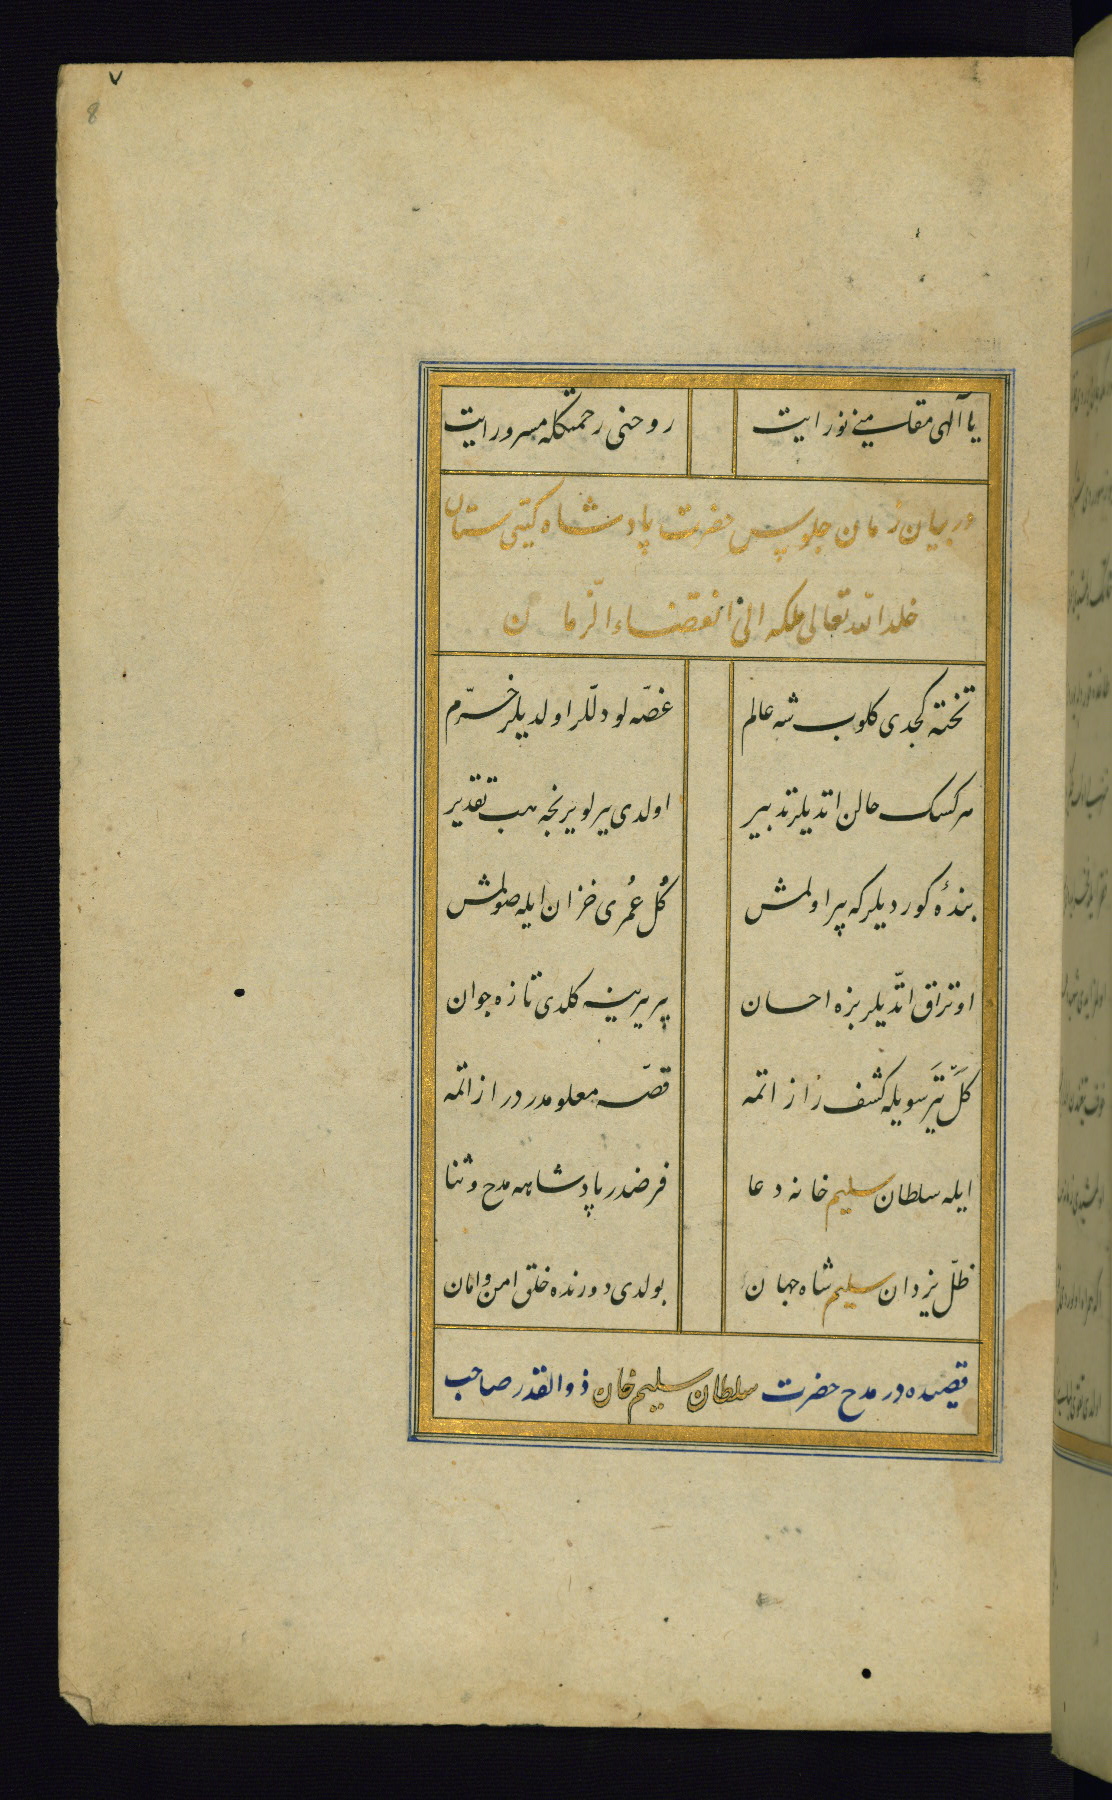 ٧
8
یا آلهی مقامینی نور ایت روحنی رحمتکله مسرور ایت
در بیان زمان جلوس حضرت پادشاه کیتی ستان
خلد الله تعالی ملکه الی انقضاء الزمان
تختنه کجدی کلوب شه عالم غصّه لو دللر اولدیلر خسرّم
هر کسک حالن اتدیلر تدبیر اولدی یرلو یرنجه هب تقدیر
بندهٔ کوردیلر که پیر اولمش کُل عُمری خزان ایله صولمش
اوتراق اتّدیلر بزه احسان پیر یرینه کلدی تازه جوان
سویله کشف راز اتمه قصّه معلومدر دراز اتمه
ایله سلطان سلیم خانه دعا فرضدر پادشاهه مدح و ثنا
ظلّ یزدان سلیم شاه جهان بولدی دورنده خلق امن و امان
قصیده در مدح حضرت سلطان سلیم خان ذو القدر صاحب